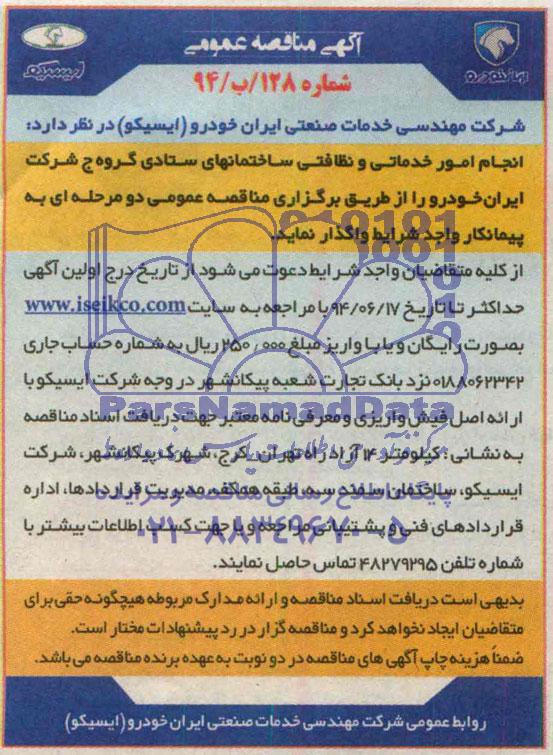 آگهی مناقصه عمومی
ایران خودرو
ایسیکو
شماره ۱۲۸/ب/۹۴
شرکت مهندسی خدمات صنعتی ایران خودرو (ایسیکو) در نظر دارد:
انجام امور خدماتی و نظافتی ساختمانهای ستادی گروه ج شرکت
ایران خودرو را از طریق برگزاری مناقصه عمومی دو مرحله ای به
پیمانکار واجد شرایط واگذار نماید.
از کلیه متقاضیان واجد شرایط دعوت می شود از تاریخ درج اولین آگهی
حداکثر تا تاریخ ۹۴/۰۶/۱۷ با مراجعه به سایت www.iseikco.com
بصورت رایگان و یا با واریز مبلغ ۲۵۰,۰۰۰ ریال به شماره حساب جاری
۰۱۸۸۰۶۲۳۴۲ نزد بانک تجارت شعبه پیکانشهر در وجه شرکت ایسیکو با
ارائه اصل فیش واریزی و معرفی نامه معتبر جهت دریافت اسناد مناقصه
به نشانی: کیلومتر ۱۴ آزاد راه تهران _ کرج، شهرک پیکانشهر، شرکت
ایسیکو، ساختمان سمند سه، طبقه همکف، مدیریت قراردادها، اداره
قراردادهای فنی و پشتیبانی مراجعه و یا جهت کسب اطلاعات بیشتر با
شماره تلفن ۴۸۲۷۹۲۹۵ تماس حاصل نمایند.
بدیهی است دریافت اسناد مناقصه و ارائه مدارک مربوطه هیچگونه حقی برای
متقاضیان ایجاد نخواهد کرد و مناقصه گزار در رد پیشنهادات مختار است.
ضمناً هزینه چاپ آگهی های مناقصه در دو نوبت به عهده برنده مناقصه می باشد.
روابط عمومی شرکت مهندسی خدمات صنعتی ایران خودرو (ایسیکو)
ParsNamadData
۰۲۱-۸۸۳۴۹۶۷۰-۵